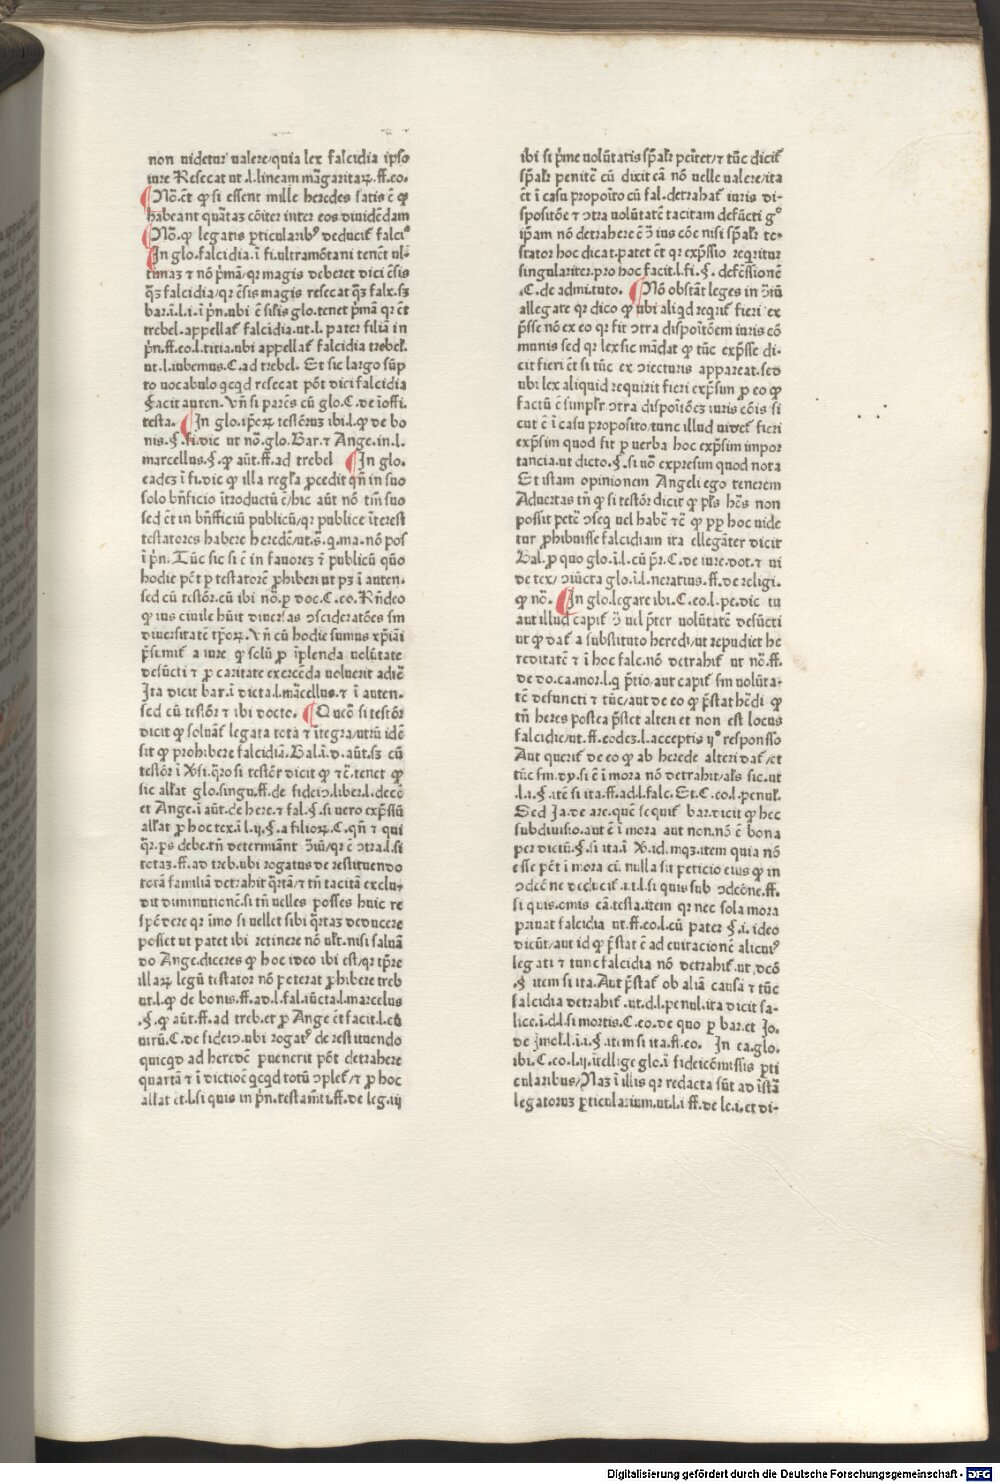 non uidetur ualere/quia lex falcidia ipso
iure Resecat ut .l. lineam mãgaritaꝝ.ff.eo.
Nõ.ẽt ꝙ si essent mille heredes satis ẽ ꝙ
habeant quãtaꝫ cõiter inter eos diuidẽdam
Nõ.ꝙ legatis ꝑticularibꝰ deducit͛ falciᵃ
In glo.falcidia.ĩ fi.ultramõtani tenẽt ul
timaꝫ ⁊ nõ p̃mã/qꝛ magis deberet dici ẽsis
bar.ĩ.l.i.ĩ p̃n.ubi ẽ silis glo.tenet p̃mã qꝛ ẽt
trebel.appellat͛ falcidia.ut.l. pater filiã in
p̃n.ff.eo.l.titia.ubi appellat͛ falcidia trebel͛.
ut.l.iubemus.C.ad trebel. Et sic largo sũp
to uocabulo qcqd resecat põt dici falcidia
facit auten. Vñ si parẽs cũ glo.C.de ĩoffi.
testa. In glo.ip̃oꝝ testõruꝫ ibi.l.ꝙ de bo
nis.§.fi.dic ut nõ.glo.Bar.⁊ Ange.in.l.
marcellus.§.ꝙ aũt.ff.ad trebel In glo.
eadeꝫ ĩ fi.dic ꝙ illa regl͛a ꝓcedit qñ in suo
solo bñficio ĩtroductũ ẽ/hic aũt nõ tm̃ suo
sed ẽt in bñfficiũ publicũ/qꝛ publice ĩterest
testatores habere heredẽ/ut.s̃.q.ma.nõ pos
ĩ p̃n. Tũc sic si ẽ in fauoreꝫ ⁊ publicũ quõ
hodie põt ꝑ testatorẽ ꝓhiberi ut pꝫ ĩ auten.
sed cũ testõr.cũ ibi nõ.ꝑ doc.C.eo. Rñdeo
ꝙ ius ciuile hũit diuersas ↄsideratões sm
diuersitatẽ tp̃oꝝ. Vñ cũ hodie sumus xp̃iãi
p̃sumit͛ a iure ꝙ solũ ꝓ ĩplenda uolũtate
defũcti ⁊ ꝓ caritate exercẽda uoluerit adiẽ
Ita dicit bar.ĩ dicta.l.mãcellus.⁊ ĩ auten.
sed cũ testõr ⁊ ibi docto. Quero si testõr
dicit ꝙ soluãt͛ legata tota ⁊ ĩtegra/utrũ idẽ
sit ꝙ prohibere falcidiã. Bal.ĩ.d.aũt.sꝫ cũ
testõr ĩ Xsi.q̃ro si testõr dicit ꝙ ⁊c̃.tenet ꝙ
sic allat͛ glo.singu.ff.de fideiↄ.liber.l.decẽ
et Ange.ĩ aũt.de here.⁊ fal.§.si uero exp̃ssũ
allat͛ ꝓ hoc tex.ĩ l.ij.§.a filioꝝ.C.qñ ⁊ qui
totaꝫ.ff.ad treb.ubi rogatus de restituendo
totã familiã detrahit q̃rtã/⁊ tñ tacitã exclu
dit diminutionẽ.si tñ uelles posses huic re
spõdere qꝛ ĩmo si uellet sibi q̃rtaꝫ deducere
posset ut patet ibi retinere nõ ult͛.nisi saluã
do Ange.diceres ꝙ hoc ideo ibi est/qꝛ tp̃re
illaꝝ legũ testator nõ poterat ꝓhibere treb
ut.l.ꝙ de bonis.ff.ad.l.fal.iũcta.l.marcelus
.§.ꝙ aũt.ff.ad treb.et ꝓ Ange ẽt facit.l.cũ
uirũ.C.de fideiↄ.ubi rogatꝰ de restituendo
quicqd ad heredẽ ꝑuenerit põt detrahere
quartã ⁊ ĩ dictiõe qcqd totũ ↄplet͛/⁊ ꝓ hoc
allat ẽt.l.si quis in p̃n.testam̃ti.ff.de leg.iij
ibi si p̃me uolũtatis sp̃alr penitet/⁊ tũc dicit͛
sp̃alr penitẽ cũ dixit eã nõ uelle ualere/ita
ẽt ĩ casu proposito cũ fal.detrahat͛ iuris di
spositõe ⁊ ↄtra uolũtatẽ tacitam defũcti g°
ip̃am nõ detrahere ẽ ↄ̃ ius cõe nisi sp̃alr te
stator hoc dicat.patet ẽt qꝛ exp̃ssio requiritur
singulariter.pro hoc facit.l.fi.§.defẽssionẽ
.C.de admi.tuto. Nõ obstãt leges in ↄ̃iũ
allegate qꝛ dico ꝙ ubi aliqd requirit͛ fieri ex
p̃sse nõ ex eo qꝛ fit ↄtra dispoitõem iuris cõ
munis sed qꝛ lex sic mãdat ꝙ tũc exp̃sse di
cit fieri ẽt si tũc ex ↄiecturis appareat.sed
ubi lex aliquid requirit fieri exp̃sum ꝓ eo ꝙ
factũ ẽ simplr ↄtra dispoitõeꝫ iuris cõis si
cut ẽ ĩ casu proposito/tunc illud uidet͛ fieri
exp̃sim quod fit ꝑ uerba hoc exp̃sim impor
tancia.ut dicto.§.si uõ expresim quod nota
Et istam opinionem Angeli ego tenerem
Aduertas tñ ꝙ si testõr dicit ꝙ p̃ls hẽs non
possit petẽ ↄseq uel habẽ ⁊c̃ ꝙ ꝓp hoc uide
tur ꝓhibuisse falcidiam ita ellegãter dicit
Bal.ꝓ quo glo.ĩ.l.cũ p̃r.C.de iure.dot.⁊ ui
de tex/ ↄiũcta glo.ĩ.l.neratius.ff.de religi.
ꝙ nõ. In glo.legare ibi.C.eo.l.pe.dic tu
aut illud capit͛ ↄ̃ uel p̃ter uolũtatẽ defũcti
ut ꝙ dat͛ a substituto heredi/ut repudiet he
reditatẽ ⁊ ĩ hoc falc.nõ detrahit͛ ut nõ.ff.
de do.ca.mor.l.q p̃tio/aut capit͛ sm uolũta
tẽ defuncti ⁊ tũc/aut de eo ꝙ p̃stat hẽdi ꝙ
tñ heres postea p̃stet alteri et non est locus
falcidie/ut.ff.eodeꝫ.l.acceptis ij° responsso
Aut querit͛ de eo ꝙ ab herede alteri dat͛/et
tũc sm.dy.si ẽ ĩ mora nõ detrahit/al͛s sic.ut
.l.i.§.itẽ si ita.ff.ad.l.falc. Et.C.eo.l.penul͛.
Sed Ja.de are.quẽ sequit͛ bar.dicit ꝙ hec
subdiuisio.aut ẽ ĩ mora aut non.nõ ẽ bona
per dictũ.§.si ita.ĩ X.id.mqꝫ.item quia nõ
esse põt ĩ mora cũ nulla sit peticio eius ꝙ in
ↄdcõne deducit͛.ut.l.si quis sub ↄdcõne.ff.
si quis.omis cã.testa.item qꝛ nec sola mora
priuat falcidia ut.ff.eo.l.cũ pater §.i.ideo
dicũt/aut id ꝙ p̃stat ẽ ad euitacionẽ alicuiꝰ
legati ⁊ tunc falcidia nõ detrahit͛.ut.dcõ
.§ item si ita. Aut p̃stat͛ ob aliã causã ⁊ tũc
falcidia detrahit͛ .ut.d.l.penul.ita dicit sa
lice.ĩ.d.l.si mortis.C.eo.de quo ꝑ bar.et Jo.
de Jmol͛.l.i.§.item si ita.ff.eo. In ea.glo.
ibi.C.eo.l.ij.ĩtellige glo.ĩ fideicõmissis ꝑti
cularibus/Naꝫ ĩ illis qꝛ redacta sũt ad ĩstã
legatoruꝫ ꝑticularium.ut.l.i ff.de le.i.et di-
Digitalisierung gefördert durch die Deutsche Forschungsgemeinschaft - DFG